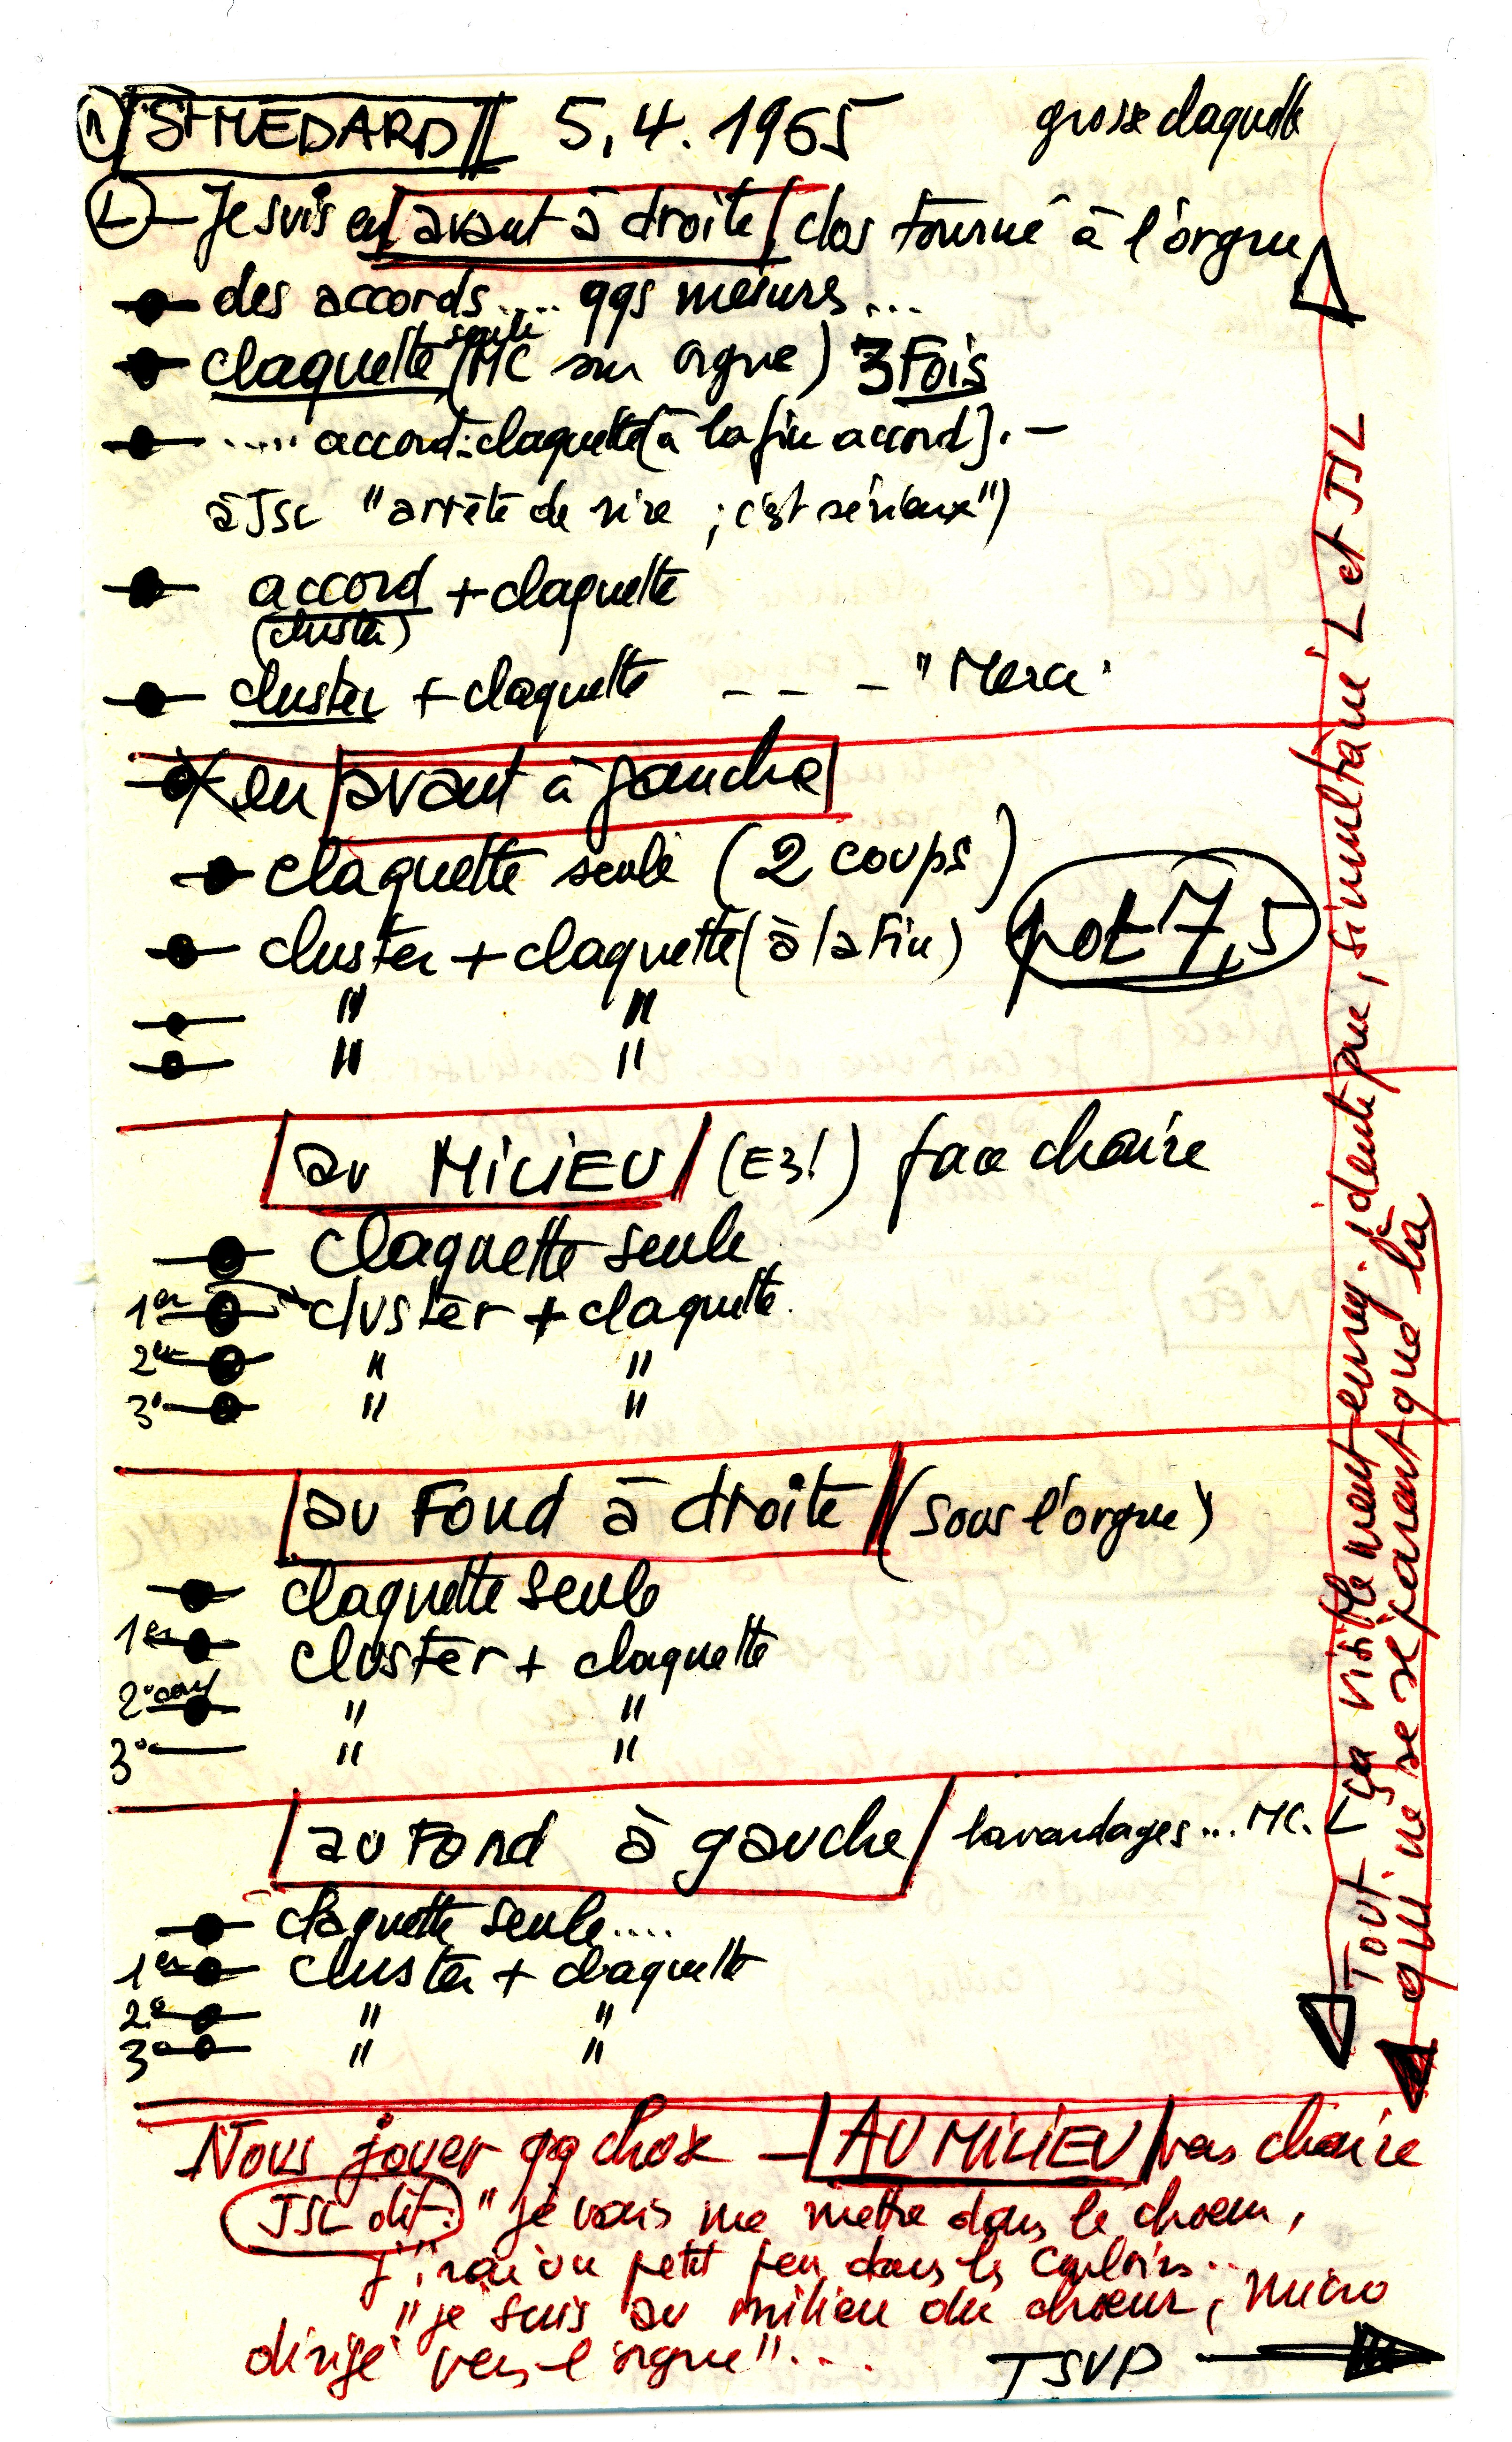 1 ST MEDARD 5.4.1965 grosse claquette
L — Je suis en avant à droite dos tourné à l'orgue
des accords.... qqs mesures...
claquette seule (MC sur orgue) 3 Fois
..... accord: claquette (à la fin accord). —
à JSC "arrête de rire ; c'est sérieux")
accord + claquette
(cluster)
cluster + claquette _ _ _ "Merci"
en avant à gauche
claquette seule (2 coups)
cluster + claquette (à la fin) pot 7,5
" "
" "
au MILIEU (E3!) face chaire
claquette seule
1er cluster + claquette
2e " "
3° " "
au Fond à droite (sous l'orgue)
claquette seule
1er cluster + claquette
2° coup " "
3° " "
au Fond à gauche bavardages... MC. L
claquette seule....
1er cluster + claquette
2° " "
3° " "
Nous jouer qq chose — AU MILIEU vers chaire
JSC dit: "je vais me mettre dans le choeur,
j'irai un petit peu dans les couloirs..
"je suis au milieu du choeur, micro
dirigé vers l'orgue"....
TSVP
Tout ça visiblement enreg. identique, simultané L et JSL
qui ne se séparent que là